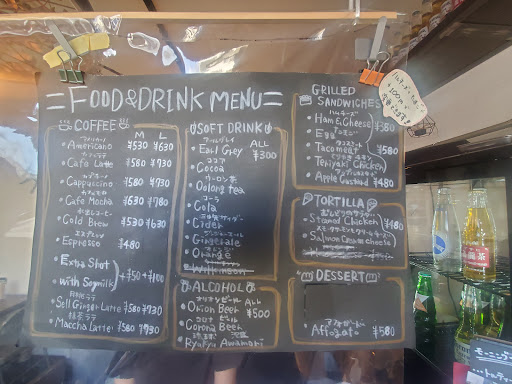 =FOOD&DRINK MENU=
COFFEE
M L
アメリカーノ
Americano ¥530 ¥630
カフェラテ
Cafe Latte ¥580 ¥730
カプチーノ
Cappuccino ¥580 ¥730
カフェモカ
Cafe Mocha ¥630 ¥780
Cold Brew ¥530 ¥630
エスプレッソ
Espresso ¥480
Extra Shot
with Soymilk
+¥50 +¥100
Soil Ginger Latte ¥580 ¥730
抹茶ラテ
Maccha Latte ¥580 ¥730
SOFT DRINK
アールグレイ ALL
Earl Grey ¥300
ココア
Cocoa
ウーロン茶
Oolong tea
コーラ
Cola
Cider
ジンジャーエール
Gingerale
オレンジ
Orange
ALCOHOL
オリオンビール ALL
Orion Beer ¥500
コロナビール
Corona Beer
琉球 泡盛
Ryukyu Awamori
GRILLED
SANDWICHES
ハムチーズ
Ham & Cheese
Egg
¥380
タコスミート
Tacomeat ¥580
テリヤキチキン
Teriyaki Chicken
Apple Custard ¥480
TORTILLA
Stamed Chicken
Salmon Cream cheese
¥480
DESSERT
アフォガード
Affogato ¥580
+100円